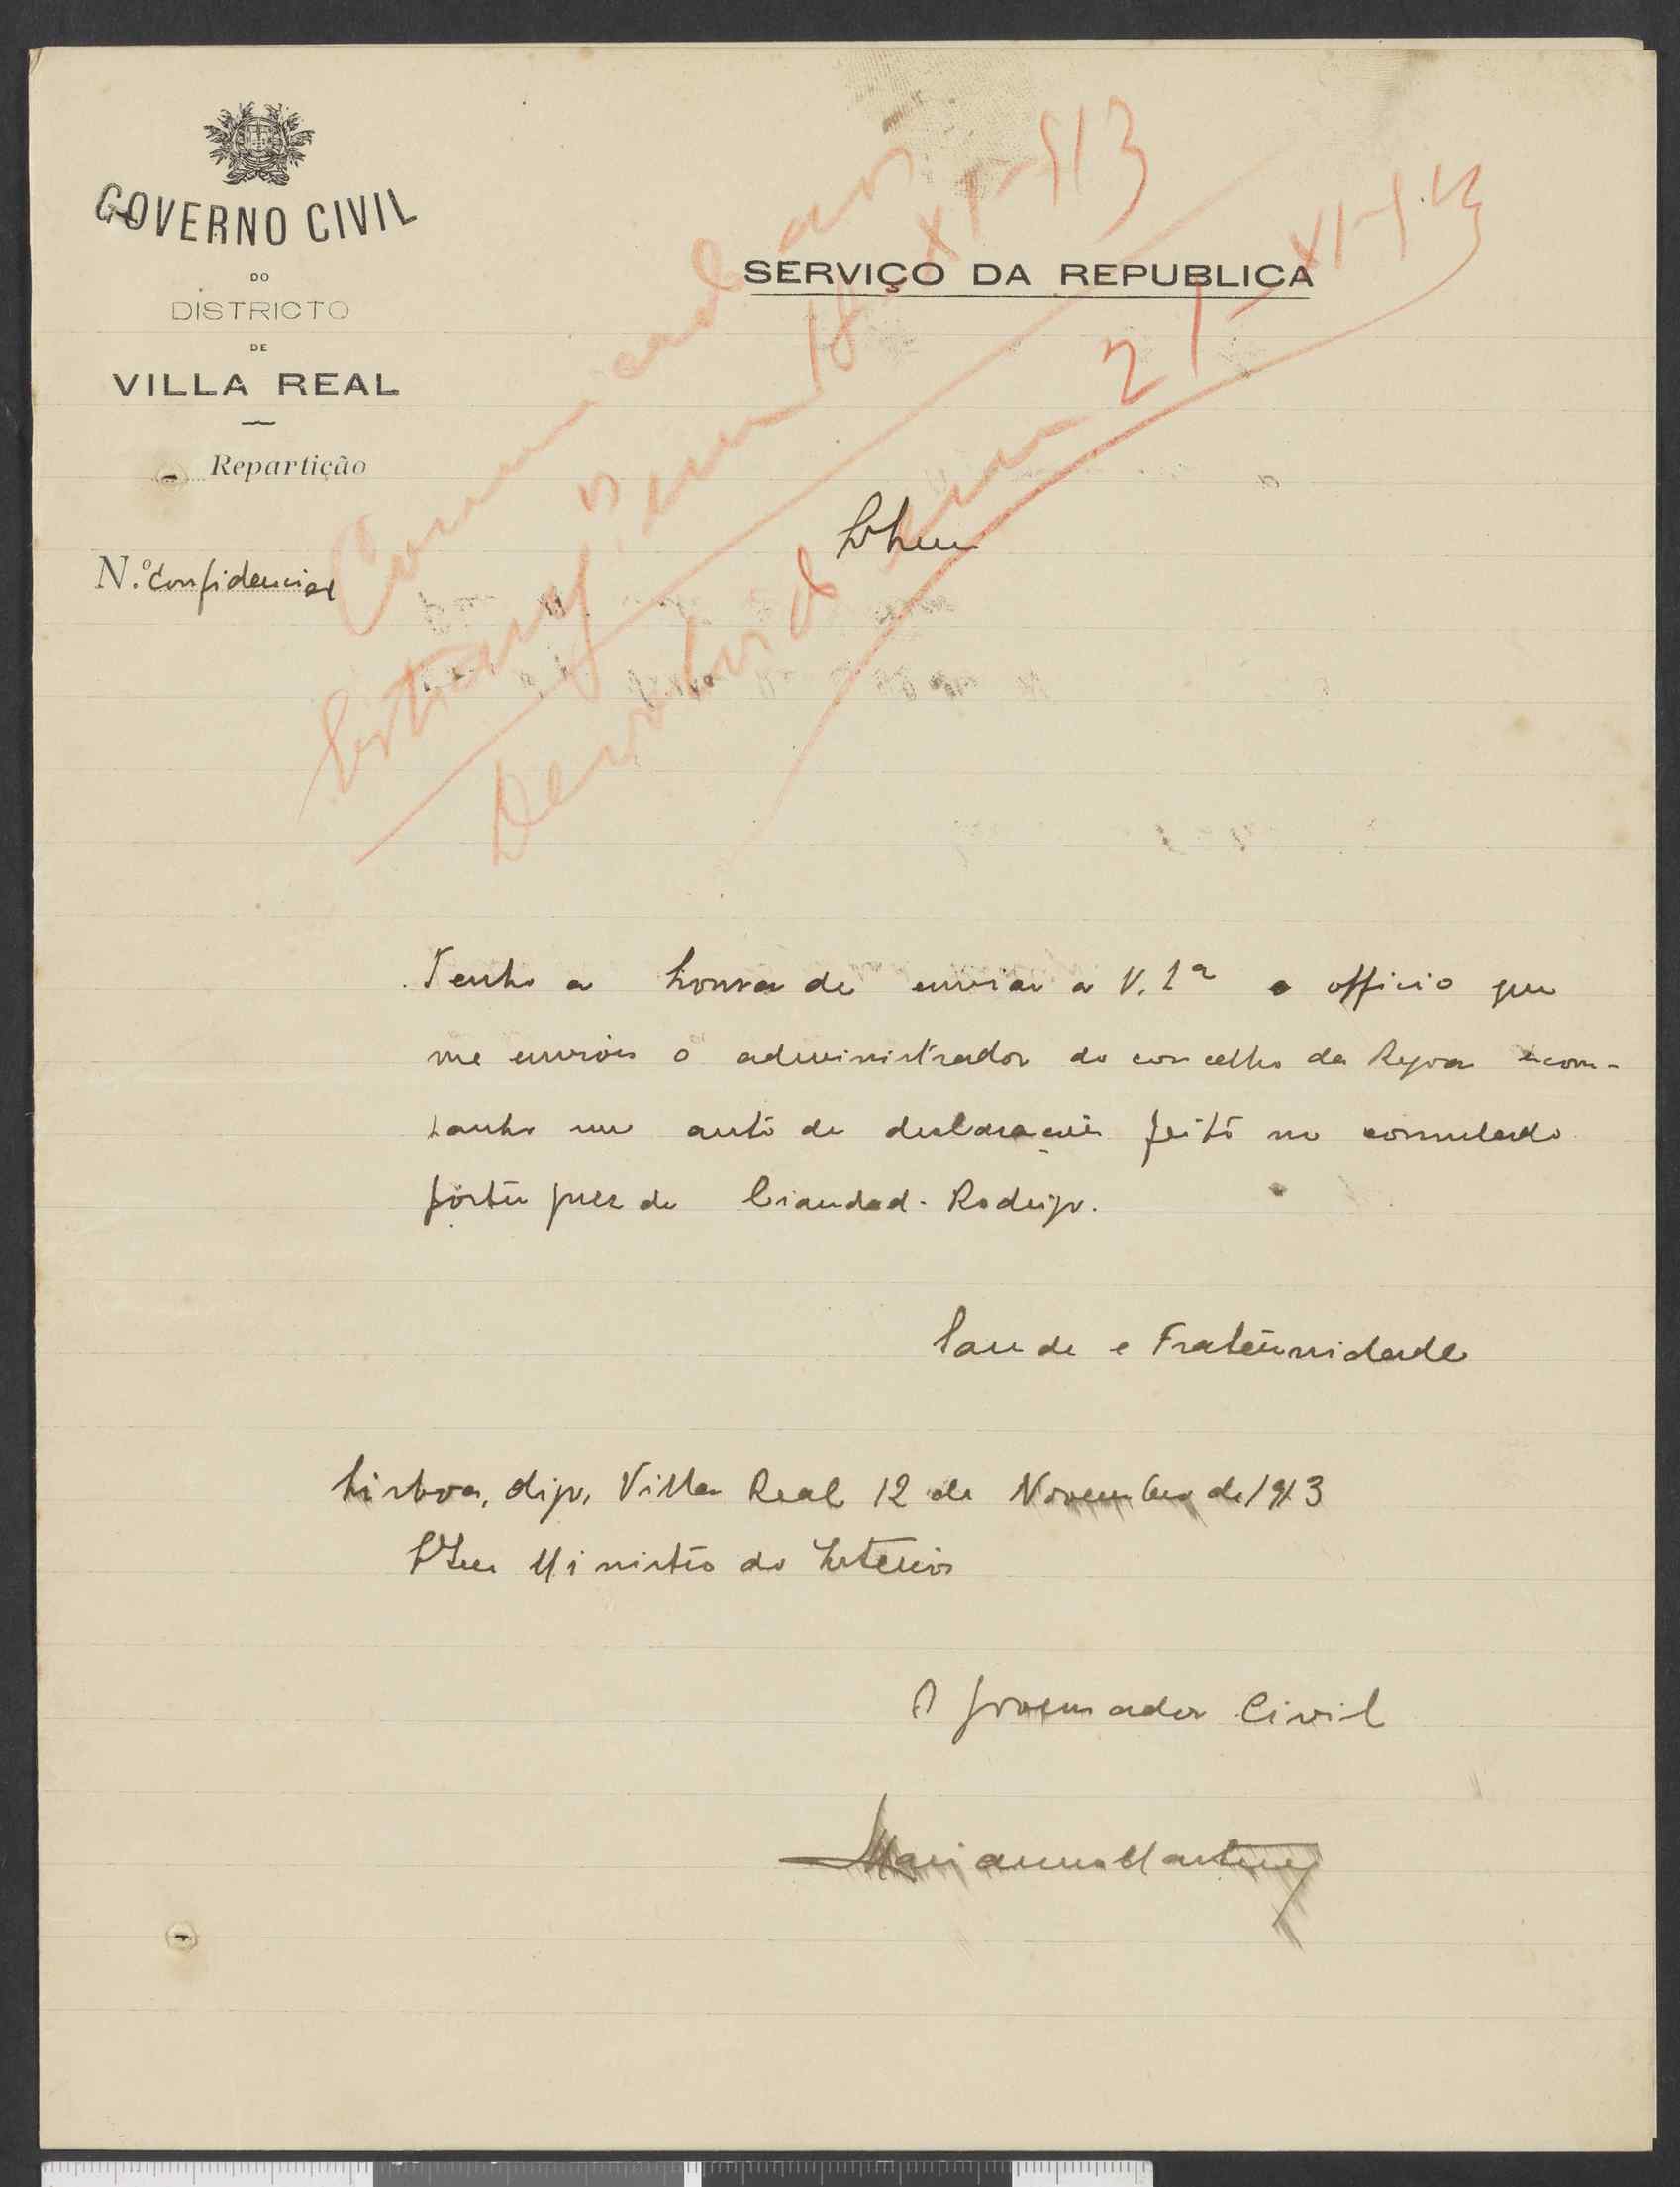 GOVERNO CIVIL
DO
DISTRICTO
DE
VILLA REAL
Repartição
N.º Confidencial
SERVIÇO DA REPUBLICA
Communicado aos
Estrang.ºs em 18-XI-913
Devolvido em 21-XI-913
Tenho a honra de enviar a V. Exª o officio que
me enviou o administrador do concelho da Regoa acom-
panho um auto de declarações feito no consulado
portuguez de Ciaudad-Rodrigo.
Saude e Fraternidade
Lisboa, digo, Villa Real 12 de Novembro de 1913
Ministro do Interior
O Governador Civil
Marianno Martins